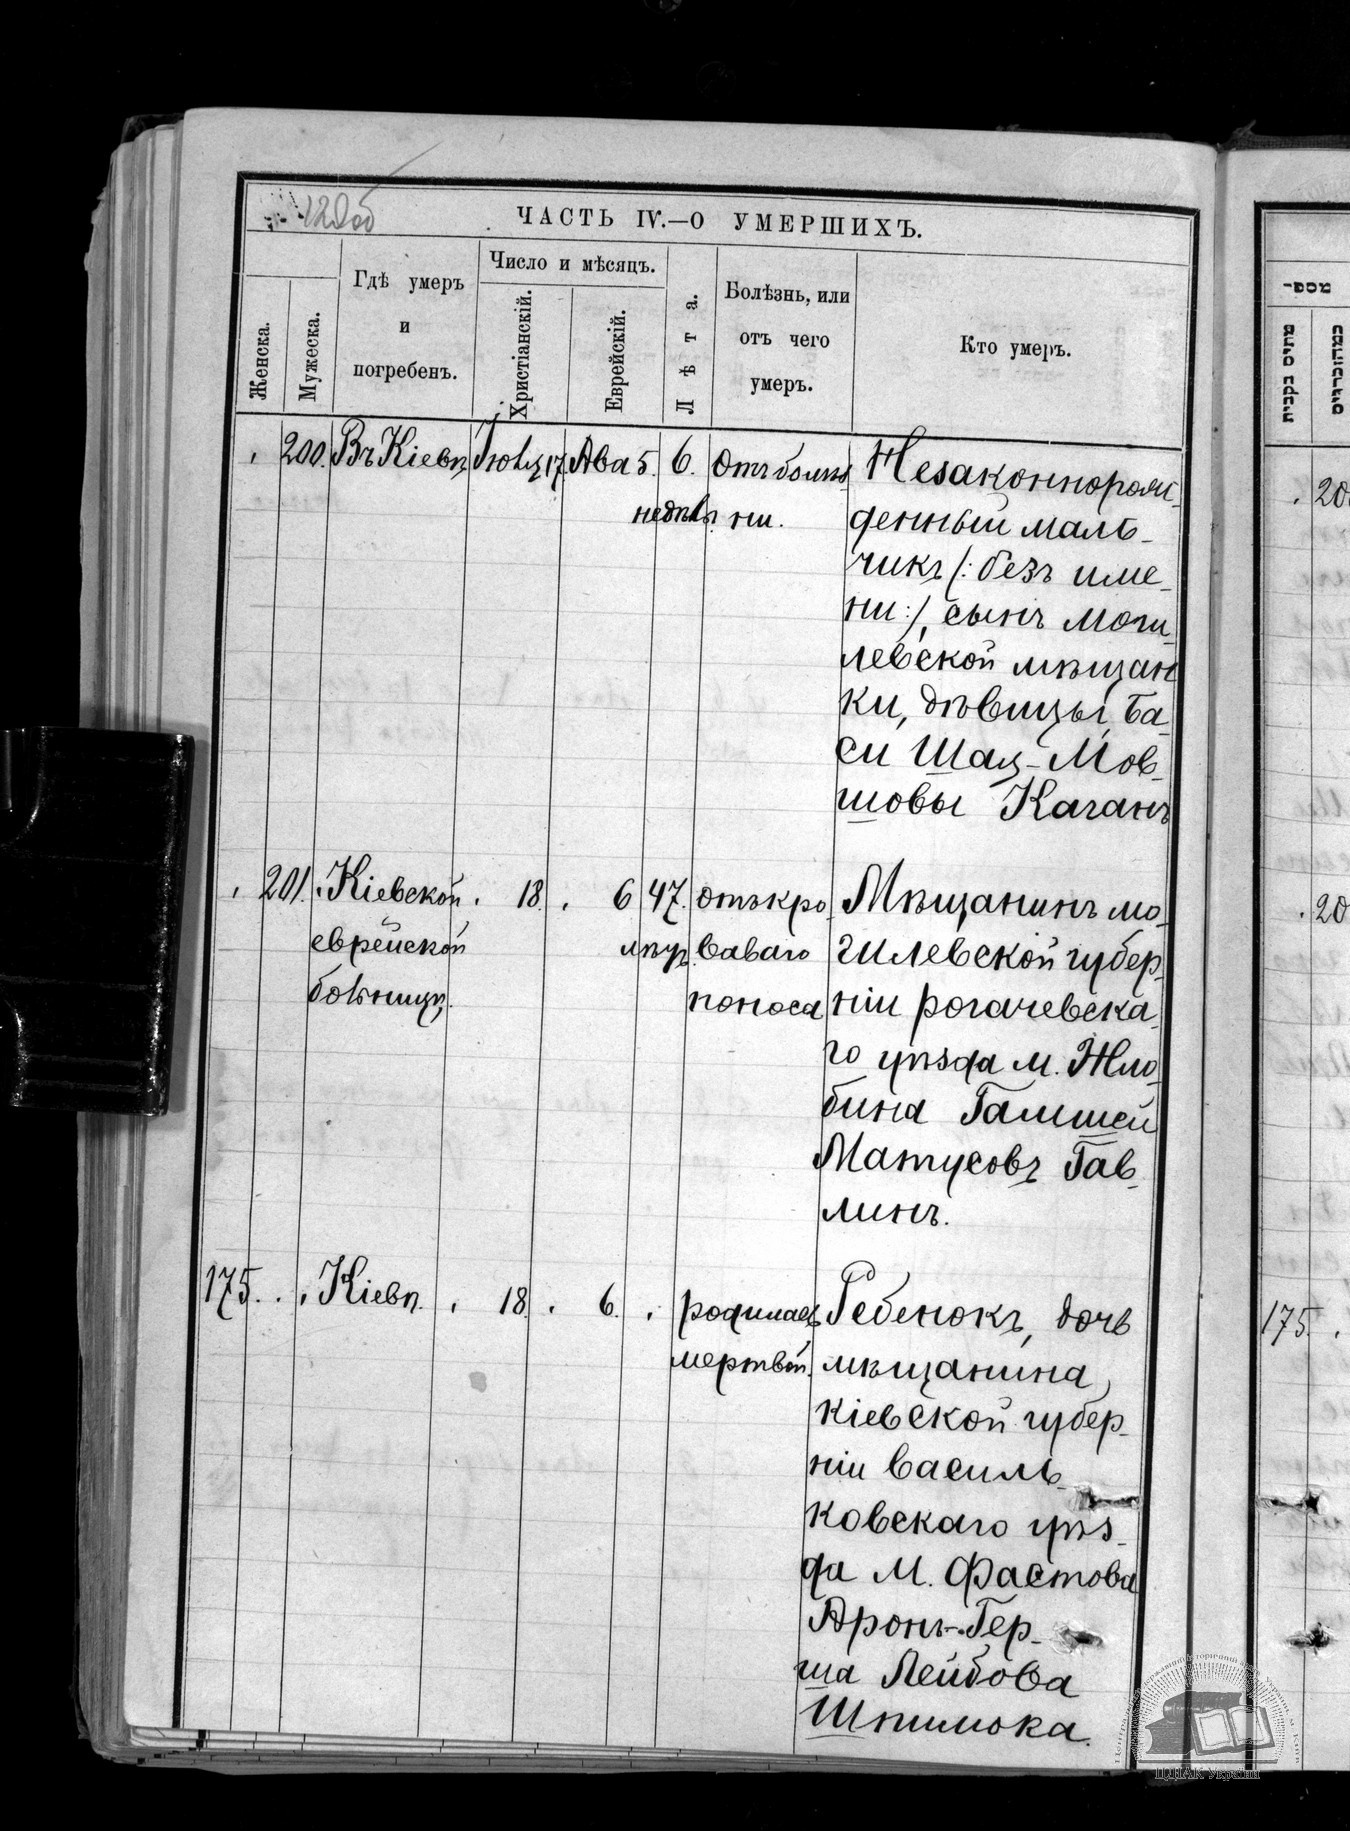 120об
ЧАСТЬ IV.—О УМЕРШИХЪ.
Женска.
Мужеска.
Гдѣ умеръ
и
погребенъ.
Число и мѣсяцъ.
Христіанскій.
Еврейскій.
Лѣта.
Болѣзнь, или
отъ чего
умеръ.
Кто умеръ.
200. Въ Кіевѣ Іюля 17 Ава 5. 6. отъ болѣз
недѣль ни.
Незаконнорож-
денный маль-
чикъ /: безъ име-
ни :/, сынъ моги-
левской мѣщан
ки, дѣвицы, Ба-
си Шая-Мов-
шовы Каганъ
201. Кіевской 18. 6 47. отъ кро-
еврейской лѣтъ ваваго
больницѣ. поноса
Мѣщанинъ мо-
гилевской губер-
ніи рогачевска-
го уѣзда м. Жло-
бина Галишей
Матусовъ Гав-
линъ.
175. Кіевѣ. 18. 6. родилась
мертвой.
Ребенокъ, дочь
мѣщанина,
кіевской губер-
ніи василь-
ковскаго уѣз-
да м. Фастова
Аронъ-Гер-
ша Лейбова
Шпилюка.
מספ-
מהים נקבות
מהזכרים
20
20
175.
ЦДІАК України